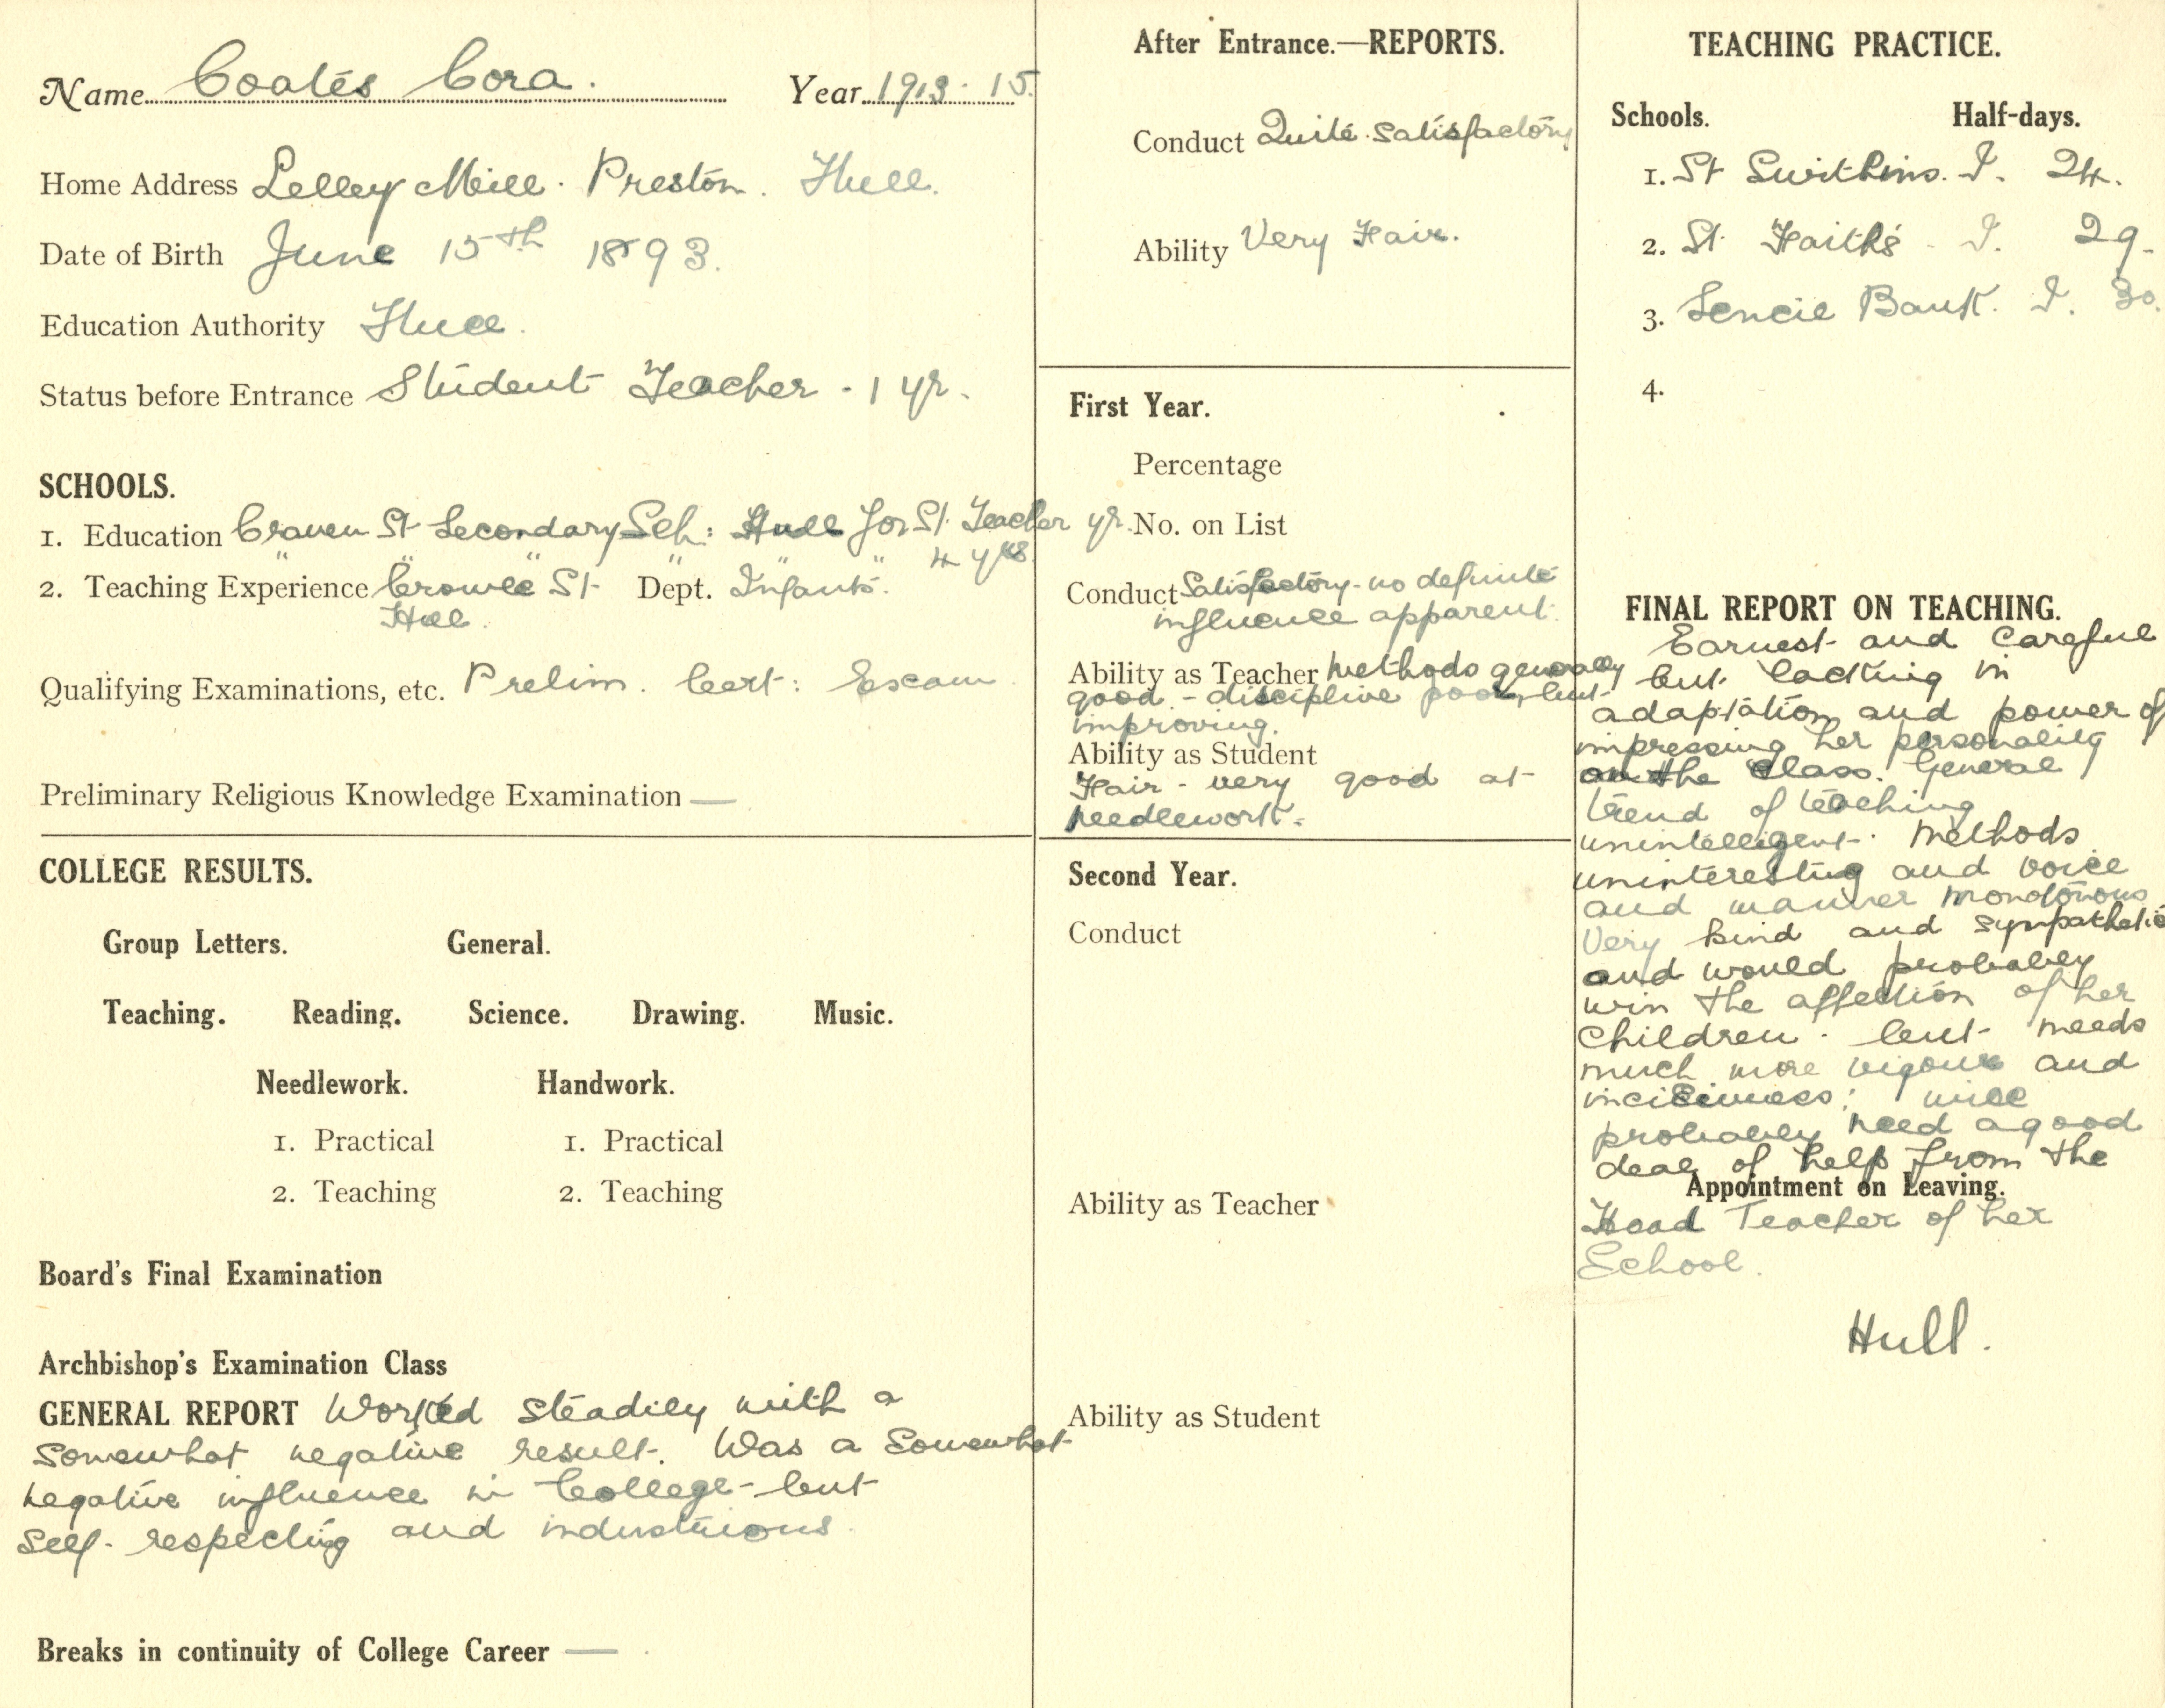 Name Coates Cora. Year 1913 · 15.
Home Address Lelley Mill · Preston. Hull.
Date of Birth June 15th 1893.
Education Authority Hull.
Status before Entrance Student Teacher - 1 yr.
SCHOOLS.
1. Education Craven St Secondary Sch: Hull for St. Teacher yr.
" " " " " " 4 yrs
2. Teaching Experience Crowle St. Dept. Infants.
Hull.
Qualifying Examinations, etc. Prelim. Cert: Exam
Preliminary Religious Knowledge Examination —
COLLEGE RESULTS.
Group Letters. General.
Teaching. Reading. Science. Drawing. Music.
Needlework. Handwork.
1. Practical 1. Practical
2. Teaching 2. Teaching
Board's Final Examination
Archbishop's Examination Class
GENERAL REPORT Worked steadily with a
somewhat negative result. Was a somewhat
negative influence in College - but
self-respecting and industrious.
Breaks in continuity of College Career —
After Entrance.—REPORTS.
Conduct Quite satisfactory
Ability Very Fair.
First Year.
Percentage
No. on List
Conduct Satisfactory - no definite
influence apparent.
Ability as Teacher Methods generally
good - discipline poor, but
improving.
Ability as Student
Fair - very good at
needlework.
Second Year.
Conduct
Ability as Teacher
Ability as Student
TEACHING PRACTICE.
Schools. Half-days.
1. St Swithins. I. 24.
2. St. Faith's - I. 29.
3. Sincil Bank. I. 30.
4.
FINAL REPORT ON TEACHING.
Earnest and careful
but lacking in
adaptation and power of
impressing her personality
on the class. General
trend of teaching
unintelligent. Methods
uninteresting and voice
and manner monotonous
Very kind and sympathetic
and would probably
win the affection of her
children - but needs
much more vigour and
incisiveness; will
probably need a good
deal of help from the
Appointment on Leaving.
Head Teacher of her
School.
Hull.